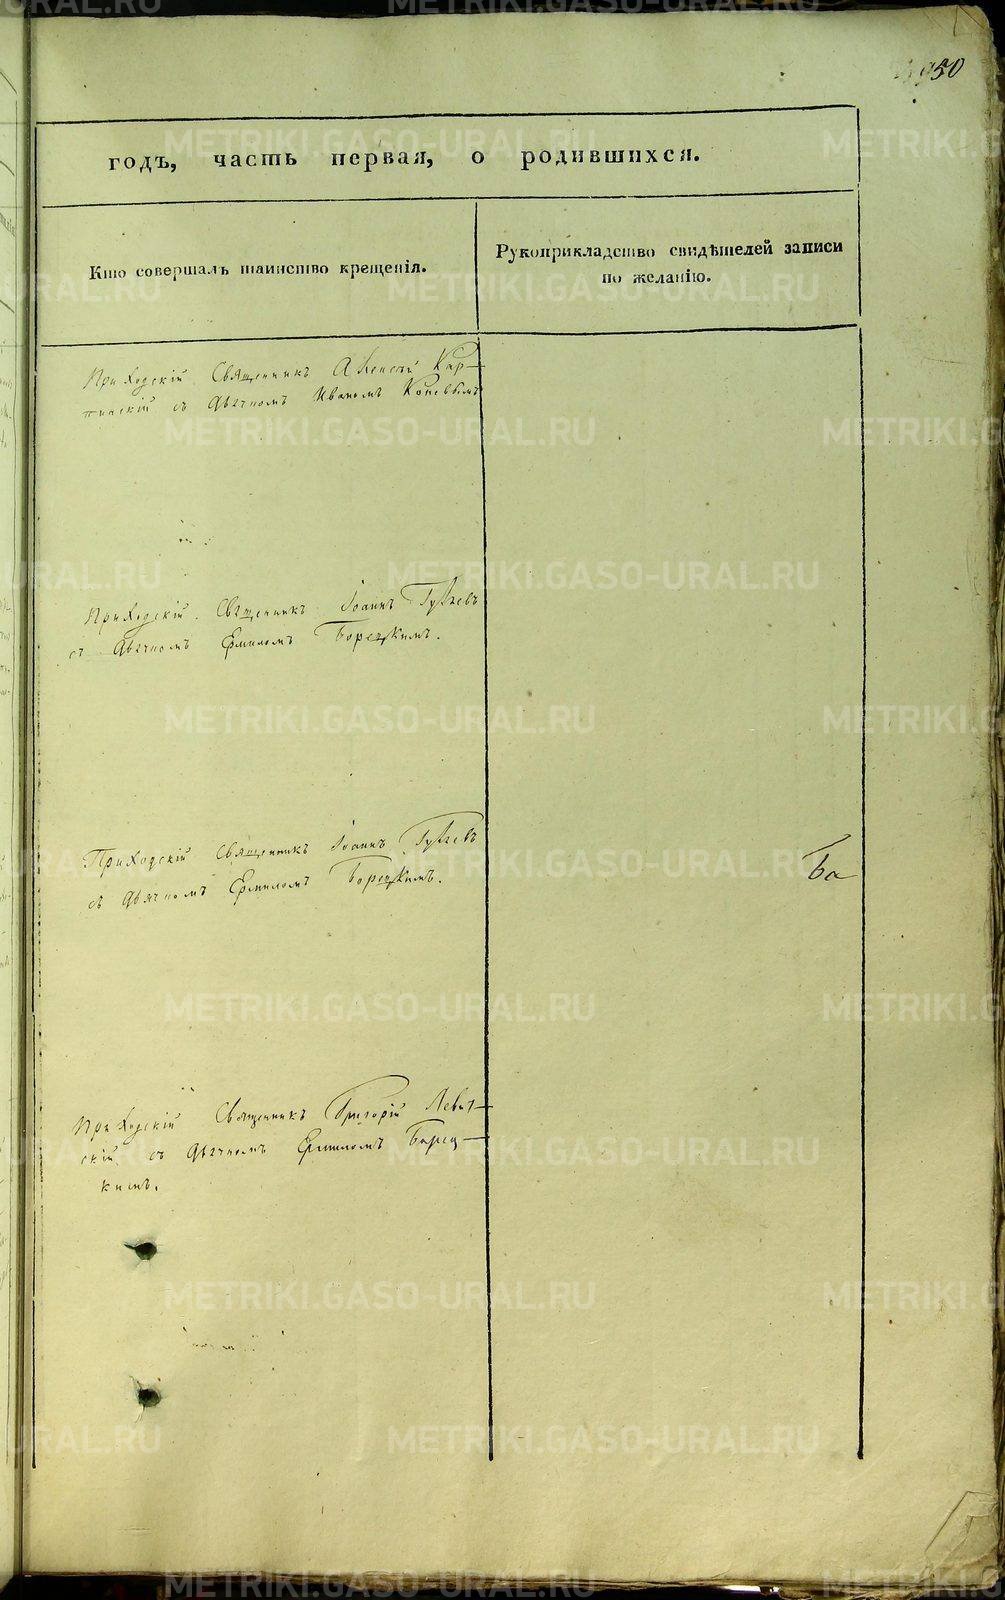 50
годъ, часть первая, о родившихся.
Кто совершалъ таинство крещенія.
Рукоприкладство свидѣтелей записи
по желанію.
Приходскій Священникъ Алексѣй Кар-
пинскій съ Дьячкомъ Иваномъ
Приходскій Священникъ Іоаннъ
съ Дьячкомъ Ермиломъ Борецкимъ.
Приходскій Священникъ Іоаннъ
съ Дьячкомъ Ермиломъ Борецкимъ.
Ба
Приходскій Священникъ Григорій Левит-
скій съ Дьячкомъ Ермиломъ Борец-
кимъ.
METRIKI.GASO-URAL.RU